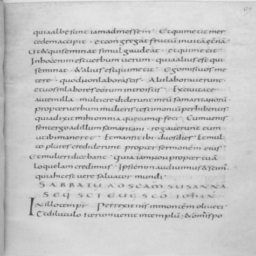 qui aalbe sunt iam ad messem Et qui metit mer
cedem accipit et congregat fructum in uitam aeterna
Et qui seminat simul gaudeat et qui metit
In hoc enim est uerbum uerum quia alius est qui
seminat et alius est qui metit Ego misi uos me
tere quod uos non laborastis Alii laborauerunt
et uos in labores eorum introistis Ex ciuitate
autem illa multi crediderunt in eum samaritanorum
propter uerbum mulieris testimonium perhibentis
quia dixit mihi omnia quaecumq feci Cum uenis
sent ergo ad illum samaritani rogauerunt eum
ut ibi maneret Et mansit ibi duos dies Et mul
to plures crediderunt propter sermonem eius
Et mulieri dicebant quia iam non propter tuam
loquelam credimus Ipsi enim audiuimus et scim
quia hic est uere saluator mundi
SABBATU AD SCAM SUSANNA
SEQ SCI EUG SCD IOHAN
In illo tempr Perrexit ihs in montem oliueti
Et diluculo iterum uenit in templu et omis po